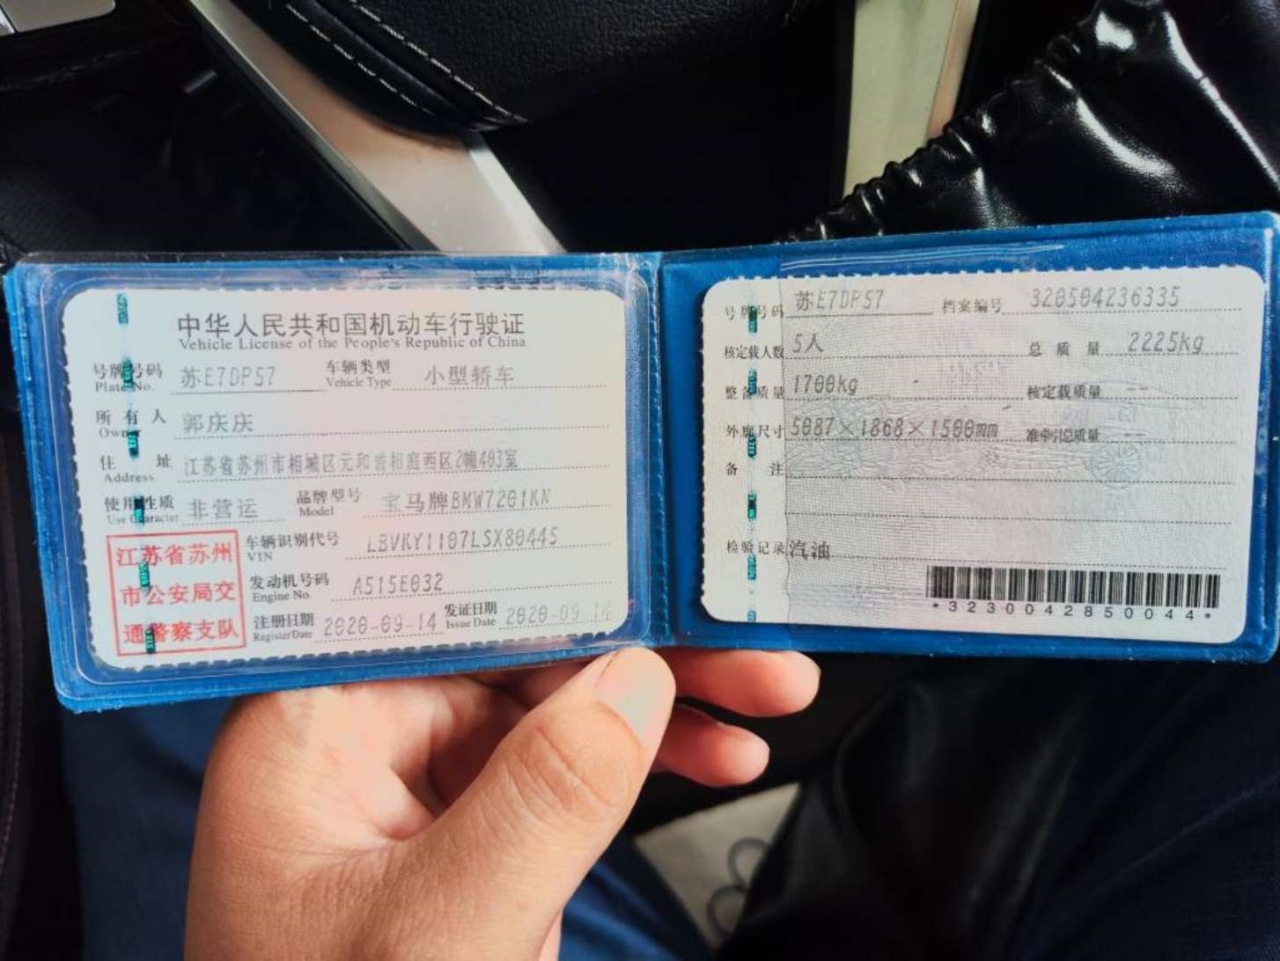 中华人民共和国机动车行驶证
Vehicle License of the People's Republic of China
号牌号码 苏E7DP57 车辆类型 小型轿车
Plate No. Vehicle Type
所有人 郭庆庆
Owner
住址 江苏省苏州市相城区元和 相庭西区2幢403室
Address
使用性质 非营运 品牌型号 宝马牌BMW7201KN
Use Character Model
江苏省苏州
市公安局交
通警察支队
车辆识别代号 LBVKY1107LSX80445
VIN
发动机号码 A515E032
Engine No.
注册日期 2020-09-14 发证日期 2020-09-14
Register Date Issue Date
号牌号码 苏E7DP57 档案编号 320504236335
核定载人数 5人 总质量 2225kg
整备质量 1700kg 核定载质量 --
外廓尺寸 5087×1868×1500mm 准牵引总质量 --
备注
检验记录 汽油
*3230042850044*